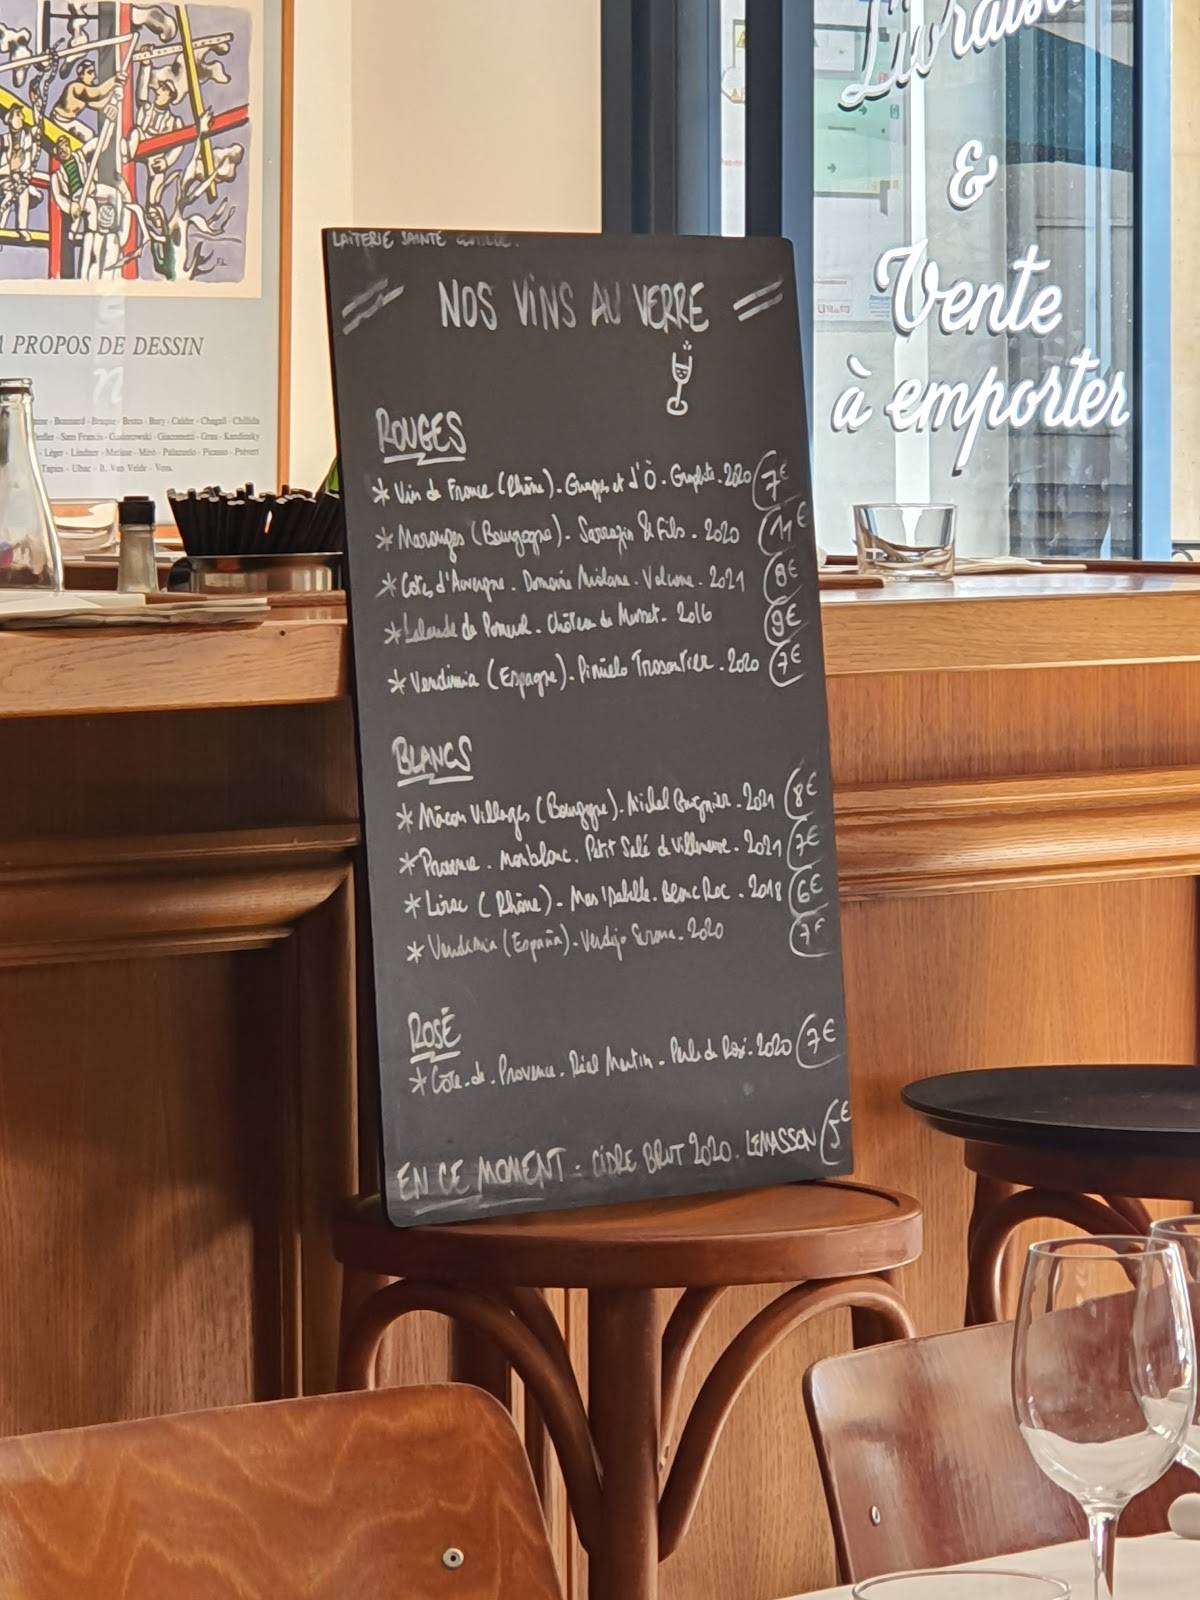 Livraison
&
Vente
à emporter
A PROPOS DE DESSIN
Bonnard - Braque - Bram - Bury - Calder - Chagall - Chillida
Sam Francis - Giacometti - Kandinsky
Léger - Lindner - Matisse - Miró - Palazuelo - Picasso - Prévert
Tapies - Ubac - B. Van Velde -
LAITERIE SAINTE
NOS VINS AU VERRE
ROUGES
* Vin de France (Rhône). Grappes et d'Ô. Graphite. 2020 7€
* Maranges (Bourgogne). Sarrazin & Fils. 2020 11€
* Côtes d'Auvergne. Domaine Miolane. Volcane. 2021 8€
* Lalande de Pomerol. Château de Musset. 2016 9€
* Vendimia (Espagne). 2020 7€
BLANCS
* Mâcon Villages (Bourgogne). Michel 2021 8€
* Provence. Monblanc. Petit Salé de Villeneuve. 2021 7€
* Lirac (Rhône). Mas Isabelle. Blanc Roc. 2018 6€
* Vendimia (España). Verdejo 2020 7€
ROSÉ
* Côte. de. Provence. Réal Martin. Perle de Rosé. 2020 7€
EN CE MOMENT : CIDRE BRUT 2020. LEMASSON 5€